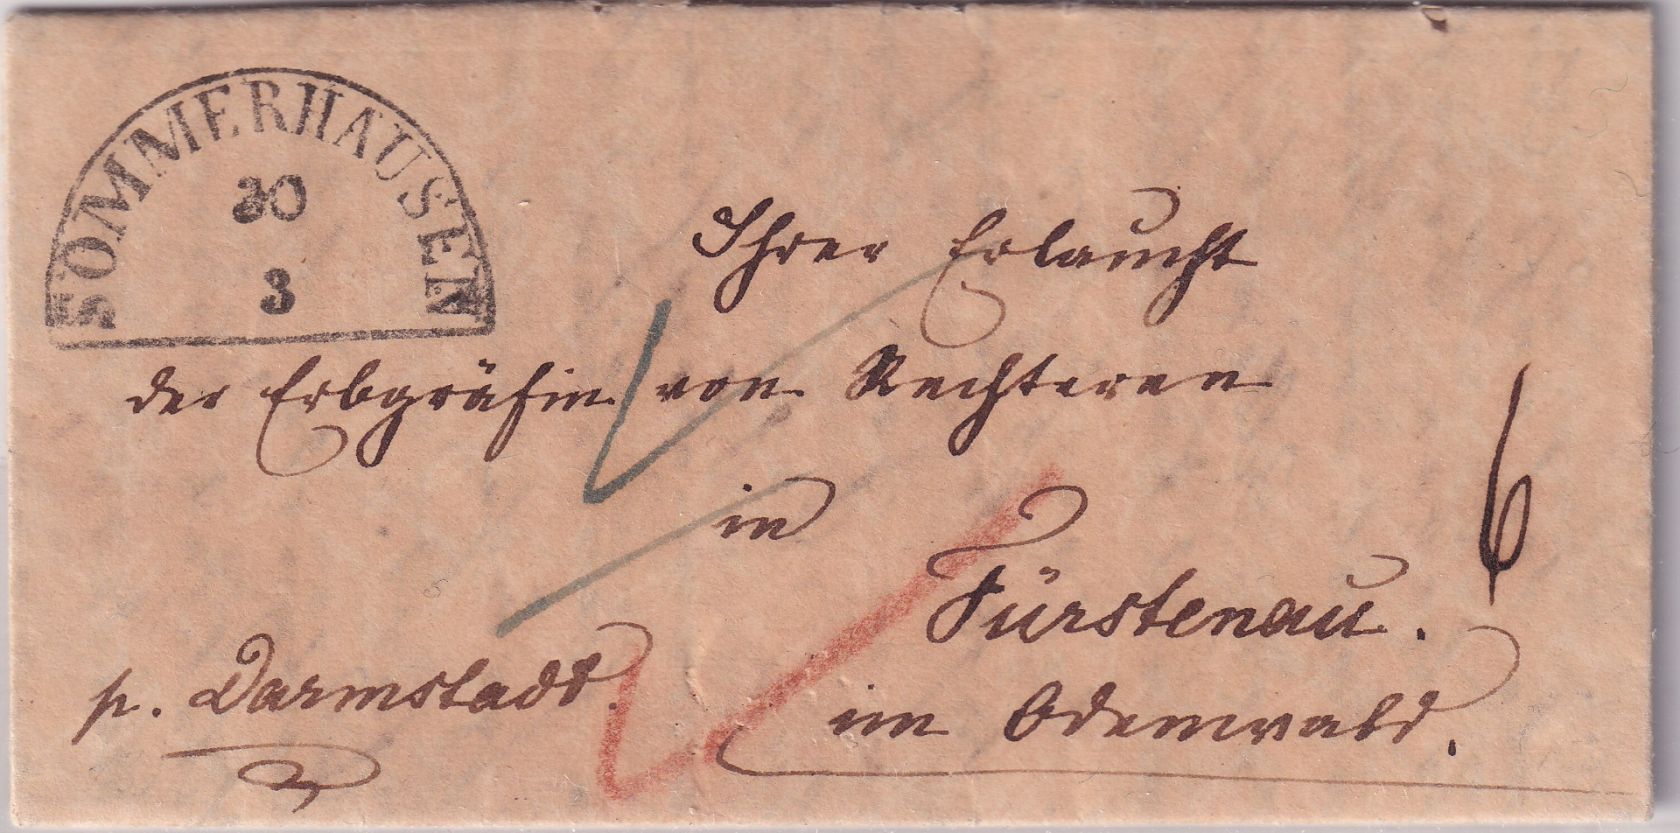 SOMMERHAUSEN
30
3
Ihrer Erlaucht
der Erbgräfin von Rechteren
in
Fürstenau.
im Odenwald.
p. Darmstadt.
6